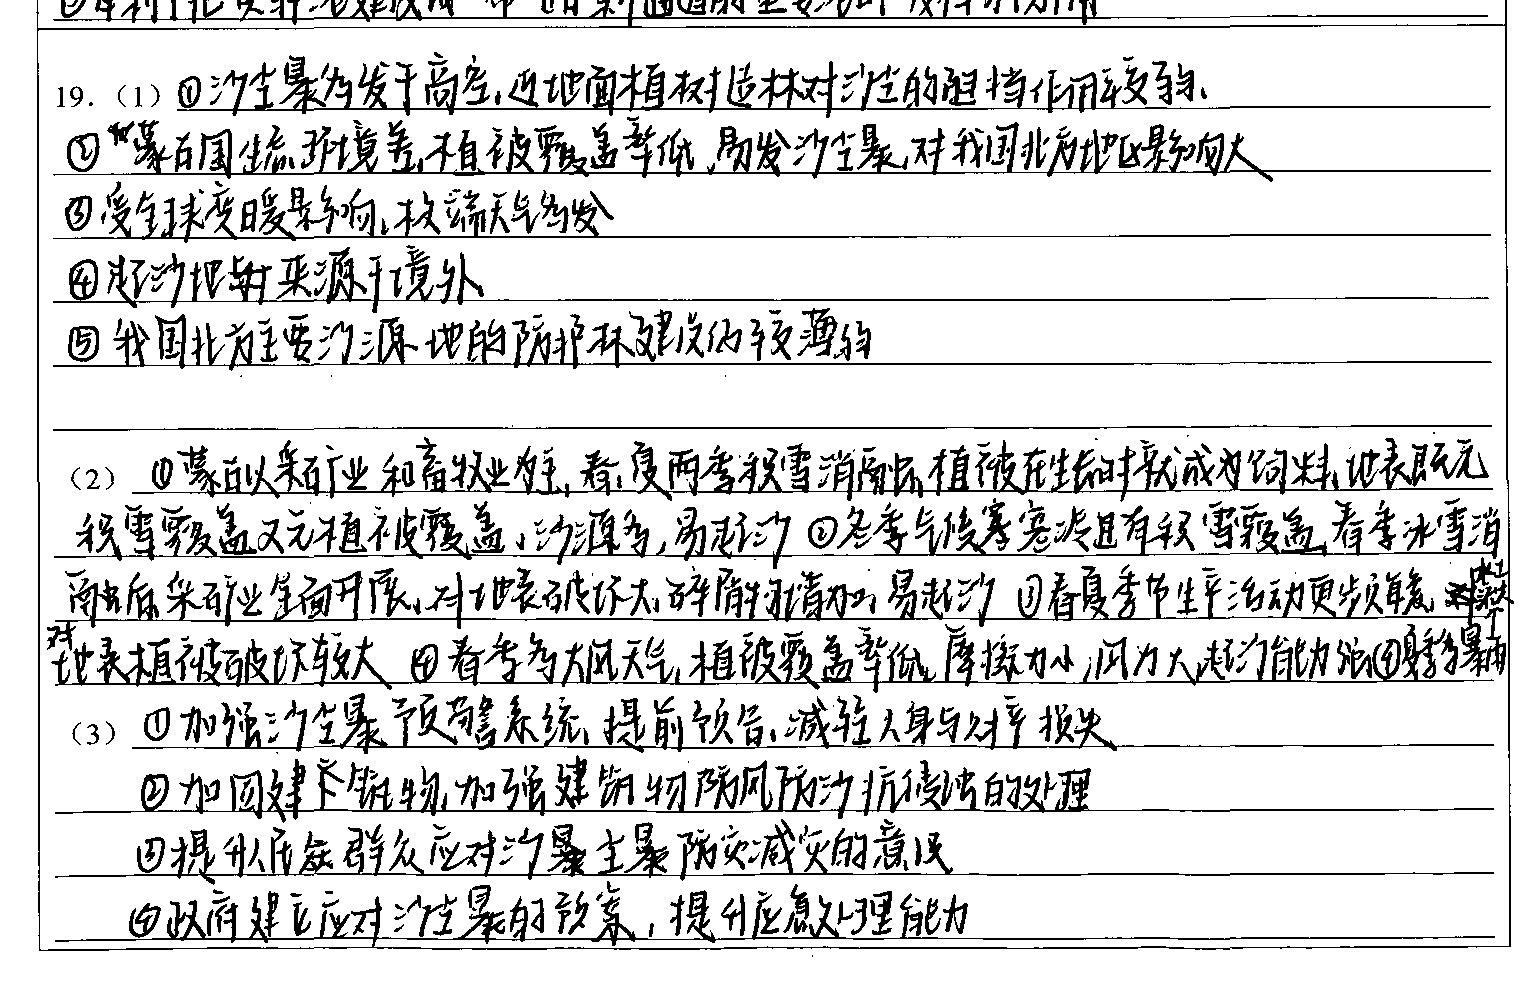 19.（1）①沙尘暴多发于高空,近地面植树造林对沙尘的阻挡作用较弱、
②蒙古国生态环境差,植被覆盖率低,易发沙尘暴,对我国北方地区影响大
③受全球变暖影响,极端天气多发
④起沙地来源于境外
⑤我国北方主要沙源地的防护林建设仍较薄弱
（2）①蒙古以采矿业和畜牧业为主,春、夏两季积雪消融后,植被在生长时就成为饲料,地表既无
积雪覆盖又无植被覆盖,沙源多,易起沙 ②冬季气候寒冷且有积雪覆盖,春季冰雪消
融后采矿业全面开展,对地表破坏大,碎屑物增加,易起沙 ③春夏季节生产活动更频繁,
对地表植被破坏较大 ④春季多大风天气,植被覆盖率低,摩擦力小,风力大,起沙能力强⑤夏季多暴雨
（3）①加强沙尘暴预警系统,提前预告,减轻人身与财产损失
②加固建筑物,加强建筑物防风防沙抗侵蚀的处理
③提升人民群众应对沙尘暴防灾减灾的意识
④政府建立应对沙尘暴的预案,提升应急处理能力